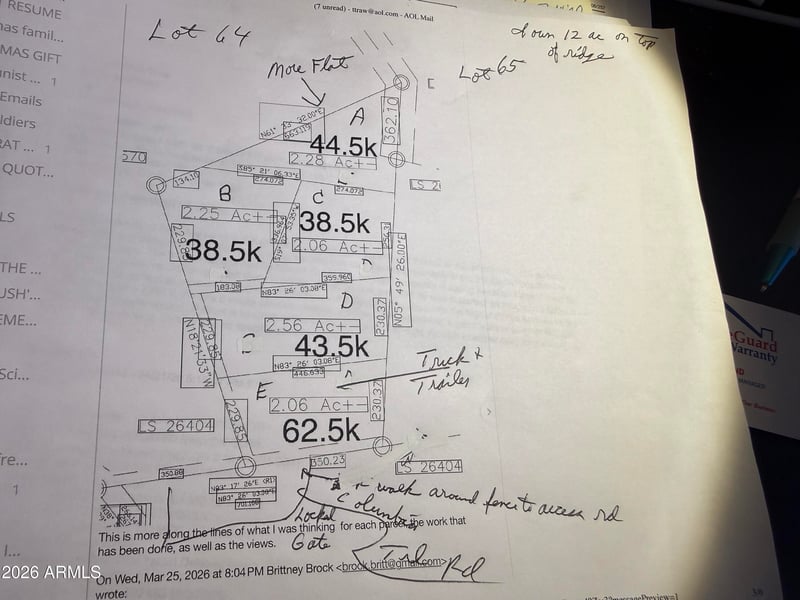 (7 unread) - ttraw@aol.com - AOL Mail
RESUME
nas famil...
MAS GIFT
nist ... 1
Emails
ldiers
RAT ... 1
QUOT...
LS
THE ...
USH'...
EME...
Sci...
fre...
1
l...
Lot 64
down 12 ac on top
of ridge
More Flat
Lot 65
E
A
362.10
44.5k
2.28 Ac+-
570
134.10
S85° 21' 06.33"E
274.072
274.072
LS 2
B
C
2.25 Ac+-
38.5k
2.06 Ac+-
229.85
38.5k
N05° 49' 26.00"E
183.08
355.960
N83° 26' 03.08"E
D
230.37
2.56 Ac+-
43.5k
N18°21'33"W
229.85
N83° 26' 03.08"E
446.635
Truck &
Trailer
E
2.06 Ac+-
230.37
229.85
62.5k
LS 26404
LS 26404
350.23
350.88
N83° 17' 26"E (R)
N83° 26' 03.08"E
walk around fence to access rd
Columbia
Locked
Gate
Trl Rd
This is more along the lines of what I was thinking for each parcel the work that
has been done, as well as the views.
On Wed, Mar 25, 2026 at 8:04 PM Brittney Brock <brock.britt@gmail.com>
wrote:
Guard
Warranty
MANAGER
2026 ARMLS